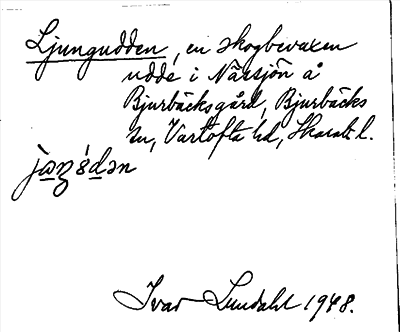 Ljungudden, en skogbevaxen
udde i Nässjön å
Bjurbäcksgård, Bjurbäcks
sn, Vartofta hd, Skarab. l.
Ivar Lundahl 1948.